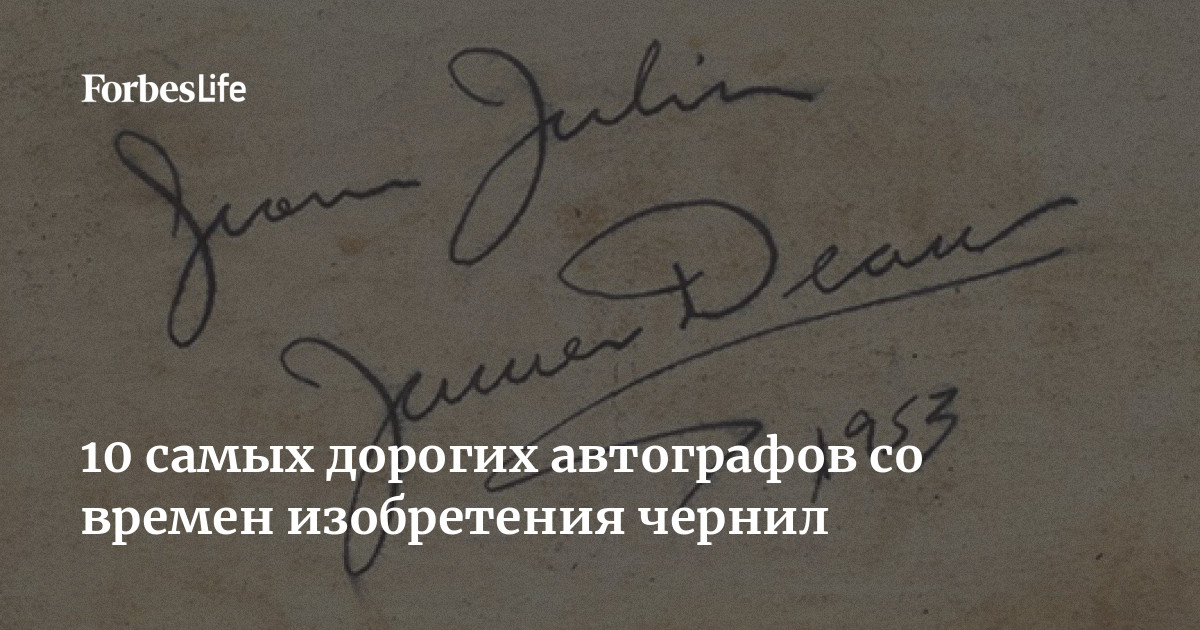 ForbesLife
James Dean
1953
10 самых дорогих автографов со
времен изобретения чернил